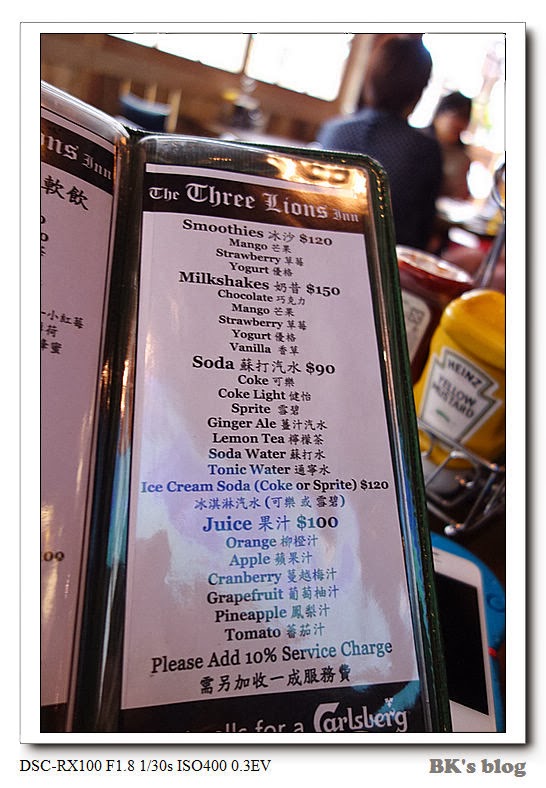 ons Inn
軟飲
小紅莓
蜂蜜
The Three Lions Inn
Smoothies 冰沙 $120
Mango 芒果
Strawberry 草莓
Yogurt 優格
Milkshakes 奶昔 $150
Chocolate 巧克力
Mango 芒果
Strawberry 草莓
Yogurt 優格
Vanilla 香草
Soda 蘇打汽水 $90
Coke 可樂
Coke Light 健怡
Sprite 雪碧
Ginger Ale 薑汁汽水
Lemon Tea 檸檬茶
Soda Water 蘇打水
Tonic Water 通寧水
Ice Cream Soda (Coke or Sprite) $120
冰淇淋汽水 (可樂 或 雪碧)
Juice 果汁 $100
Orange 柳橙汁
Apple 蘋果汁
Cranberry 蔓越梅汁
Grapefruit 葡萄柚汁
Pineapple 鳳梨汁
Tomato 蕃茄汁
Please Add 10% Service Charge
需另加收一成服務費
for a Carlsberg
HEINZ
YELLOW
MUSTARD
DSC-RX100 F1.8 1/30s ISO400 0.3EV
BK's blog